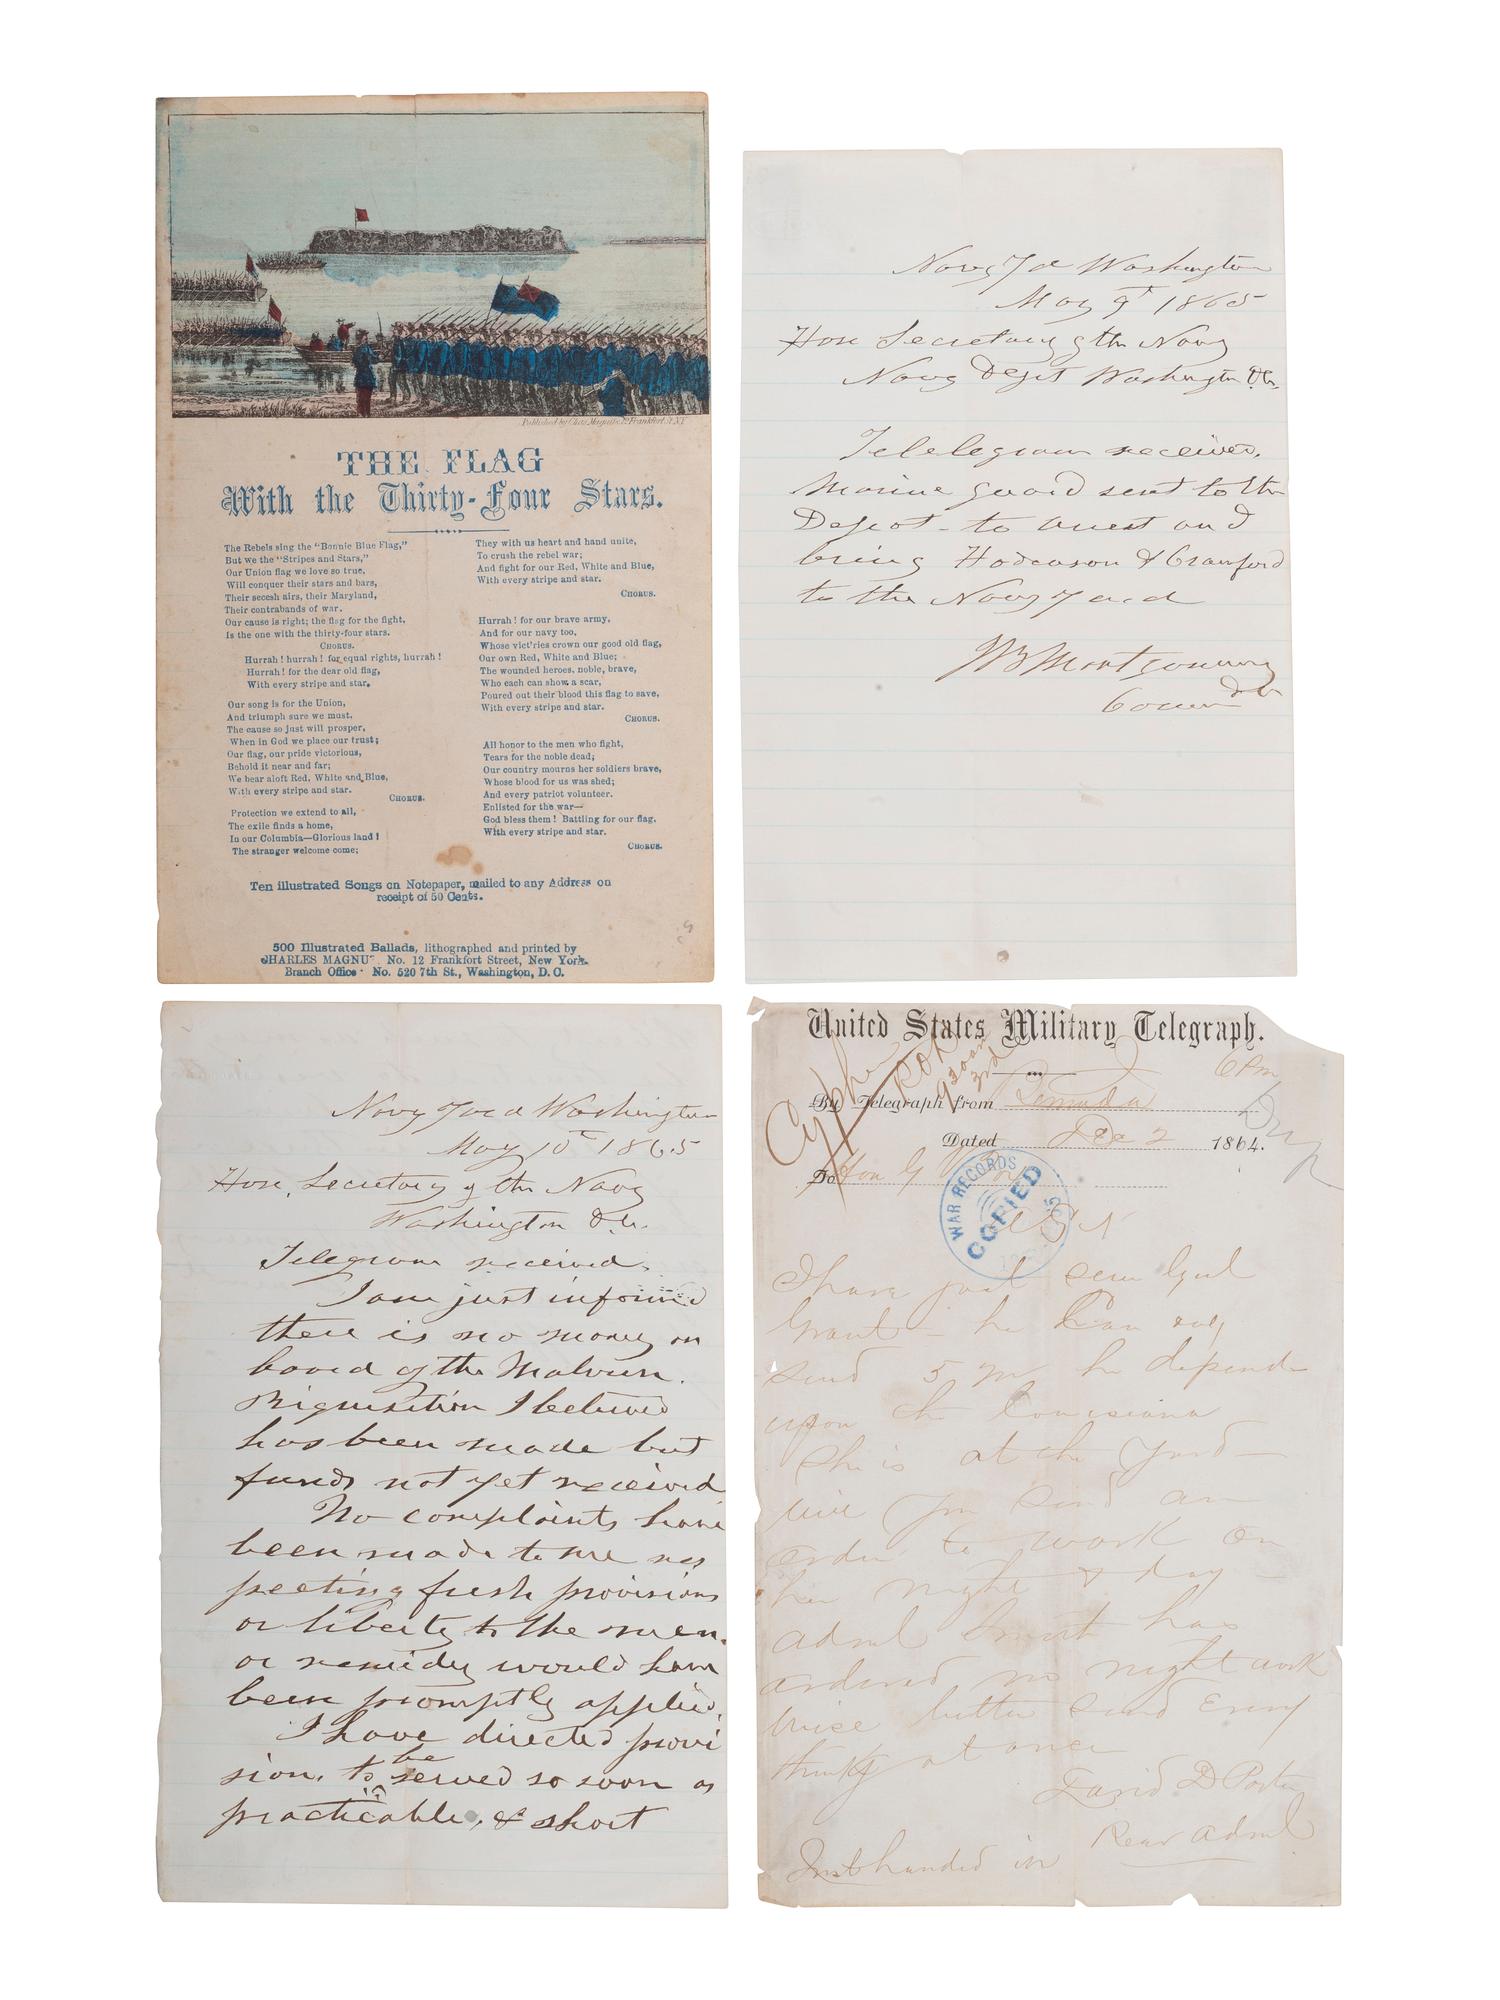 Published by Chas. Magnus, 12 Frankfort St. N.Y.
THE FLAG
With the Thirty-Four Stars.
The Rebels sing the "Bonnie Blue Flag,"
But we the "Stripes and Stars,"
Our Union flag we love so true,
Will conquer their stars and bars,
Their secesh airs, their Maryland,
Their contrabands of war.
Our cause is right; the flag for the fight,
Is the one with the thirty-four stars.
CHORUS.
Hurrah! hurrah! for equal rights, hurrah!
Hurrah! for the dear old flag,
With every stripe and star.
Our song is for the Union,
And triumph sure we must,
The cause so just will prosper,
When in God we place our trust;
Our flag, our pride victorious,
Behold it near and far;
We bear aloft Red, White and Blue,
With every stripe and star.
CHORUS.
Protection we extend to all,
The exile finds a home,
In our Columbia—Glorious land!
The stranger welcome come;
They with us heart and hand unite,
To crush the rebel war;
And fight for our Red, White and Blue,
With every stripe and star.
CHORUS.
Hurrah! for our brave army,
And for our navy too,
Whose vict'ries crown our good old flag,
Our own Red, White and Blue;
The wounded heroes, noble, brave,
Who each can show a scar,
Poured out their blood this flag to save,
With every stripe and star.
CHORUS.
All honor to the men who fight,
Tears for the noble dead;
Our country mourns her soldiers brave,
Whose blood for us was shed;
And every patriot volunteer.
Enlisted for the war—
God bless them! Battling for our flag,
With every stripe and star.
CHORUS.
Ten illustrated Songs on Notepaper, mailed to any Address on
receipt of 50 Cents.
500 Illustrated Ballads, lithographed and printed by
CHARLES MAGNUS, No. 12 Frankfort Street, New York.
Branch Office: No. 520 7th St., Washington, D. C.
Navy Yd Washington
May 9th 1865
Hon Secretary of the Navy
Navy Dept Washington D.C.
Telelegram received.
Marine guard sent to the
Depot - to arrest and
bring Hodgson & Crawford
to the Navy Yard
Montgomery
Comm
Navy Yard Washington
May 10th 1865
Hon. Secretary of the Navy
Washington D.C.
Telegram received.
I am just informed
there is no money on
board of the Malvern.
Requisition I believe
has been made but
funds not yet received
No complaints have
been made to me res
pecting fresh provisions
or liberty to the men.
or remedy would have
been promptly applied.
I have directed provi
sion, to be served so soon as
practicable, & short
United States Military Telegraph.
Cypher
920am
3rd
6 PM
By Telegraph from Bermuda
Dated Dec 2 1864.
To Hon G V Fox
WAR RECORDS
COPIED
I have just seen Genl
Grant - he can only
send 5 he depends
upon the Louisiana
She is at the Yard -
will you send an
order to work on
her night & day -
Adml Smith has
ordered no night work
twice better send Every
thing at once
David D Porter
Rear Adml
Just handed in